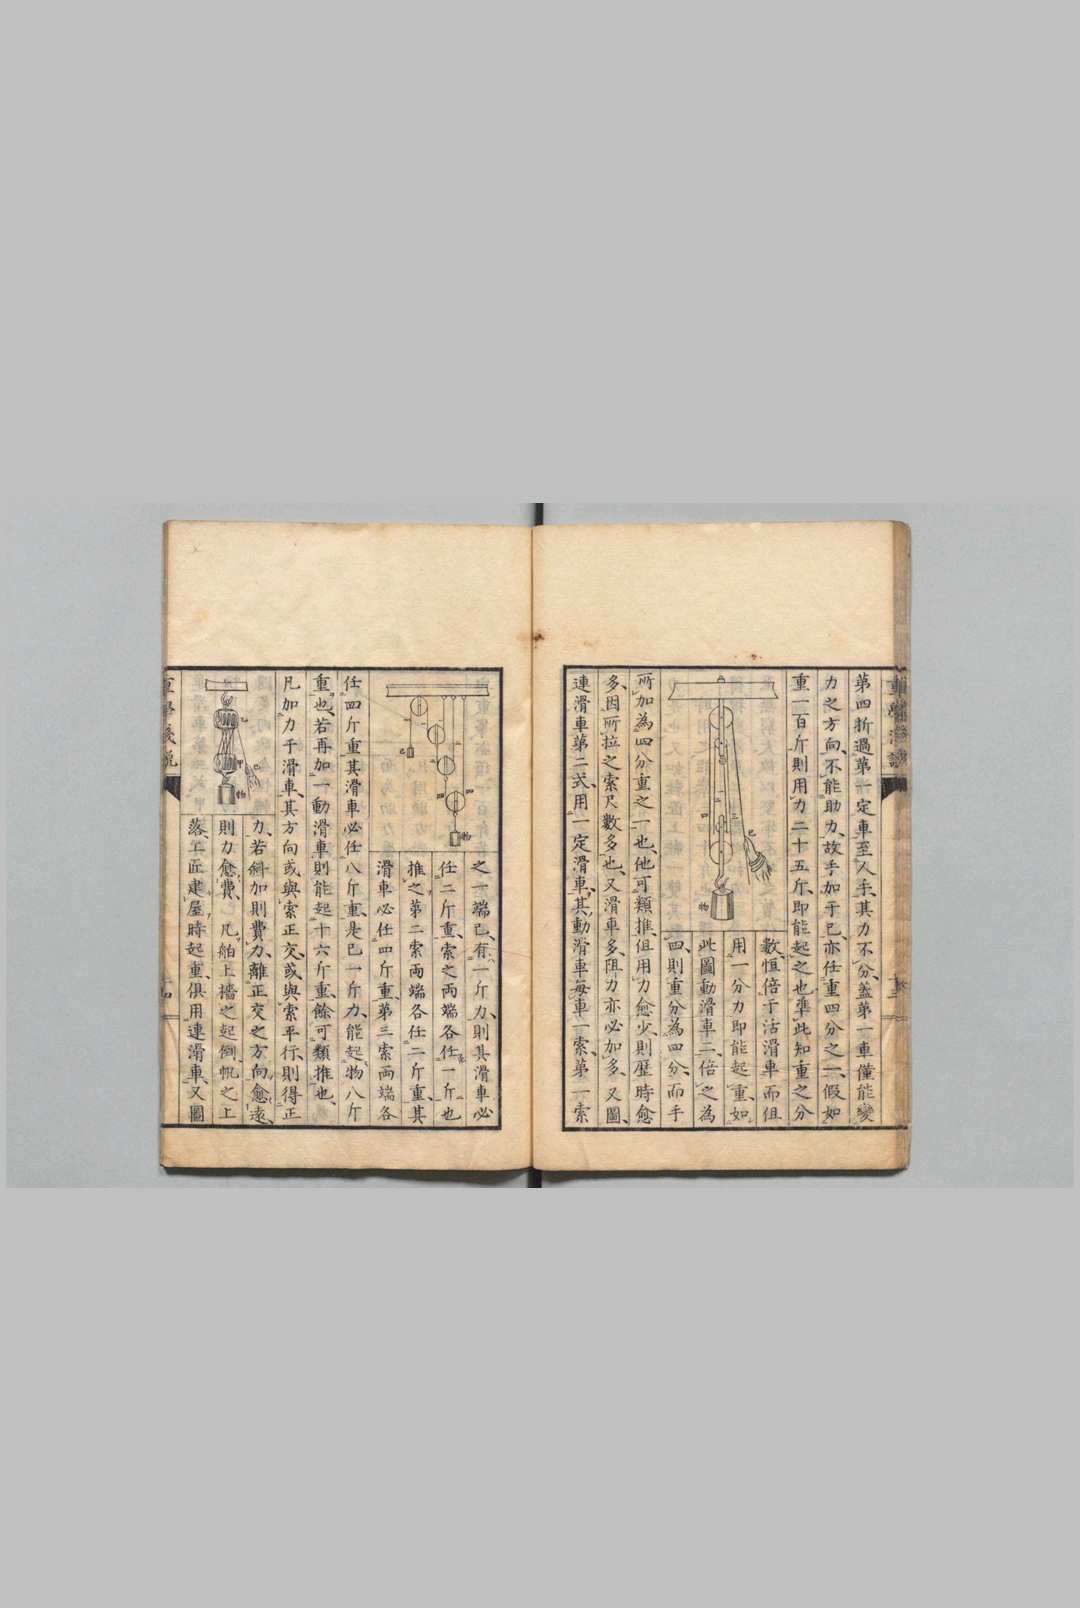 第四折過第一定車至人手其力不分蓋第一車僅能變
力之方向不能助力故手加于巳亦任重四分之一假如
重一百斤則用力二十五斤即能起之也準此知重之分
數恒倍于活滑車而但
用一分力即能起一重如
此圖動滑車二倍之為
四則重分為四分而手
所加為四分重之一也他可類推但用力愈少則歷時愈
多因所拉之索尺數多也又滑車多阻力亦必加多又圖
連滑車第二式用一定滑車其動滑車每車一索第一索
三
四
巳
物
之一端巳有一斤力則其滑車必
任二斤重索之兩端各任一斤也
推之第二索兩端各任二斤重其
滑車必任四斤重第三索兩端各
任四斤重其滑車必任八斤重是巳一斤力能起物八斤
重也若再加一動滑車則能起十六斤重餘可類推也
凡加力于滑車其方向或與索正交或與索平行則得正
力若斜加則費力離正交之方向愈遠
則力愈費凡船上檣之起倒帆之上
落工匠建屋時起重俱用連滑車又圖
巳
物
物
重學淺說